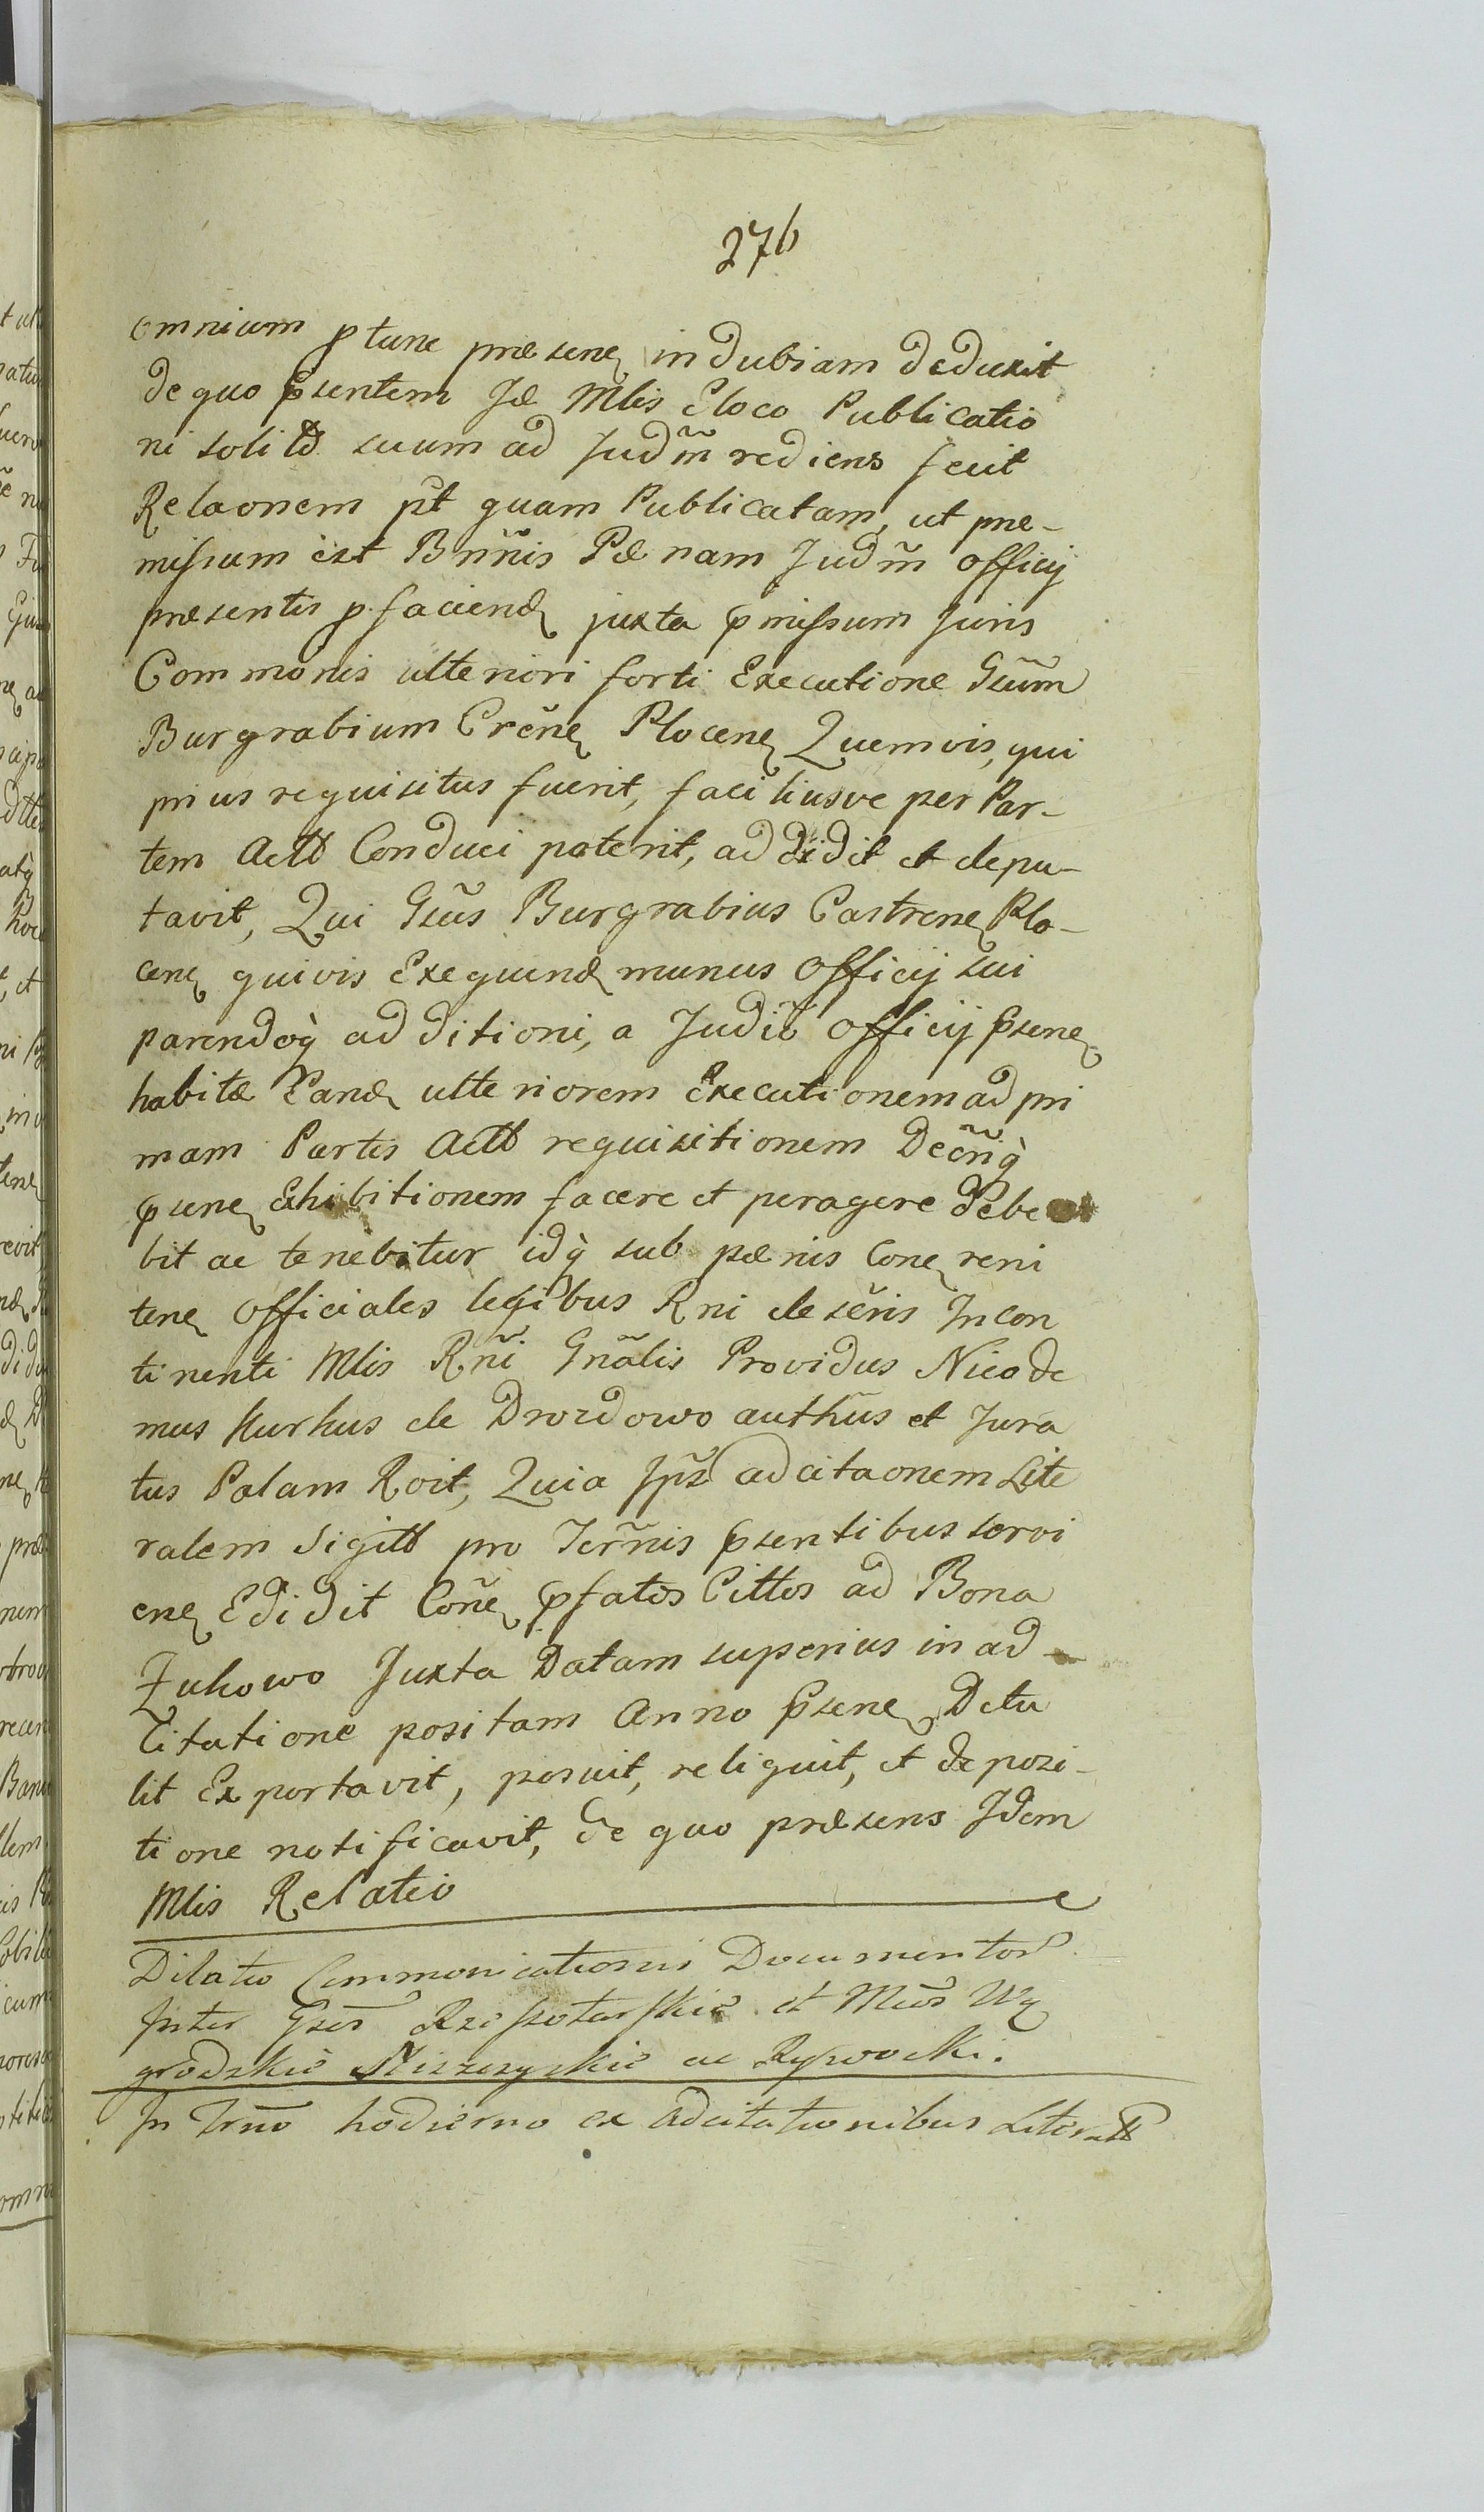 276
omnium p tunc præsenꝫ in dubiam deduxit
de quo pꝛsentem Jd Mlis Eloco Publicatio
ni solitd suum ad Judm̃ rediens fecit
Relaonem pt̃ quam Publicatam, ut præ-
missum est Bnñis Pænam Judm̃ officij
præsentis p. faciendꝫ juxta pmissum Juris
Communis ulteriori forti Executione Gsũm
Burgrabium Crẽnꝫ Plocenꝫ Quemvis, qui
prius requisitus fuerit, faciliusve per Par-
tem Actt Conduci poterit, addidit et depu-
tavit, Qui Gsũs Burgrabius Castrenꝫ Plo-
cenꝫ quivis Exequendꝫ munus Officij sui
parendoq̀ additioni, a Judiõ Officij pꝛsenꝫ
habitæ Eandꝫ ulteriorem Executionem ad pri
mam Partis Actt requisitionem Decr̃iq̀
pꝛsenꝫ Exhibitionem facere et peragere Debe
bit ac tenebitur idq̀ sub pænis Conꝫ reni
tenꝫ officiales legibus Rni desc̃ris Incon
tinenti Mlis Rñi Gnãlis Providus Nicode
mus Kurkus de Drozdowo authũs et Jura
tus Palam Roit, Quia Jps̃ ad citaonem Lite
ralem Sigitt pro Terñis pꝛsentibus servi
enꝫ Edidit Coñꝫ pꝛfatos Cittos ad Bona
Zukowo Juxta Datam superius in ad-
Citatione positam Anno pꝛsenꝫ Detu
lit Exportavit, posuit, reliquit, et de pozi-
tione notificavit, de quo præsens Jdem
Mlis Relatio
Dilatio Communicationis Documentor
Inter Gsos Rzeszotarskie et Mcõs Wy
grodzkie Miszczyskie ac Rypvocki.
In Trnõ hodierno ex Adcitationibus Literatt